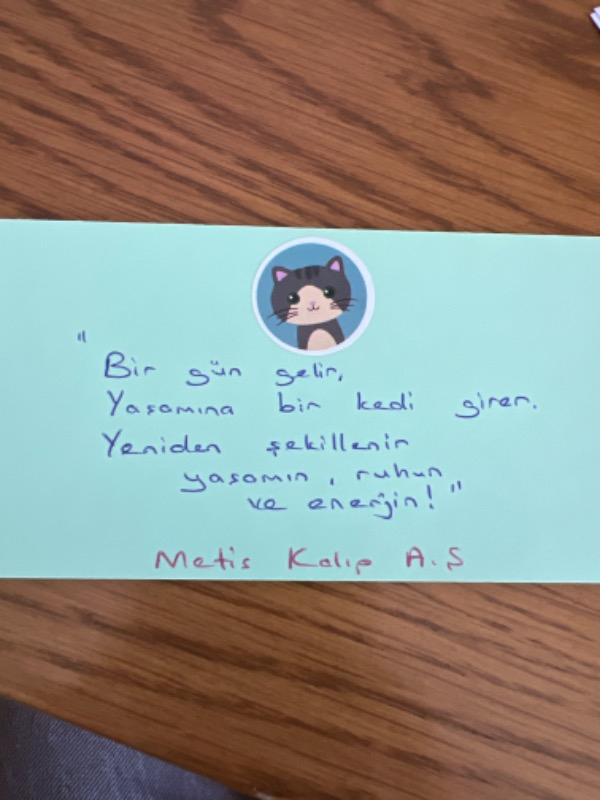 "
Bir gün gelir,
Yaşamına bir kedi girer.
Yeniden şekillenir
yaşamın, ruhun
ve enerjin!"
Metis Kalıp A.Ş